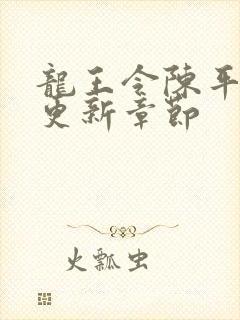 龍王令陳平
更新章節
火瓢虫